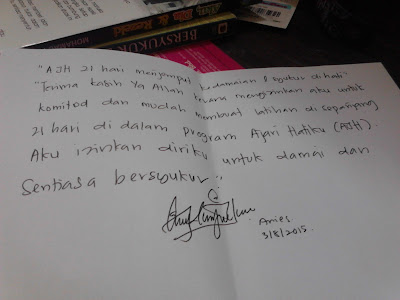 BERSYUKUR
MOHAM
"AJH 21 hari menjemput kedamaian & syukur di hati"
"Terima kasih Ya Allah kerana mengizinkan aku untuk
komited dan mudah membuat latihan di sepanjang
21 hari di dalam program Ajari Hatiku (AJH).
Aku izinkan diriku untuk damai dan
sentiasa bersyukur..
Anies
3/8/2015.